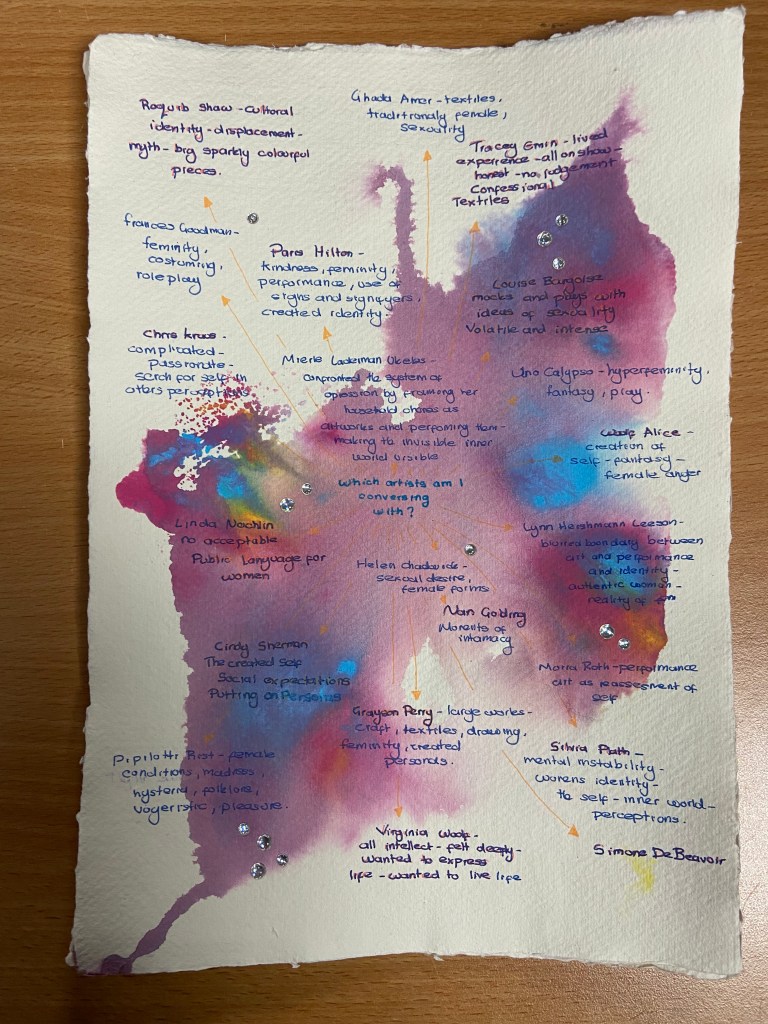 Raquib Shaw - cultoral
identity - displacement -
myth - big sparkly colourful
pieces.
Ghada Amer - textiles,
traditionaly female,
sexuality
Tracey Emin - lived
experience - all on show -
honest - no judgement
Confessional
Textiles
Frances Goodman -
feminity,
costuming,
role play
Paris Hilton -
kindness, feminity,
performance, use of
signs and signifyers,
created identity.
Louise Bargoise
mocks and plays with
ideas of sexuality
Volatile and intense
Chris Kraus -
complicated -
passionate -
serch for self in
others perceptions
Mierle Laderman Ukelas -
confronted the system of
opression by framing her
household chores as
artworks and performing them -
making th invisible inner
world visible
Uno Calypso - hyperfeminity,
fantasy, play.
Woolf Alice -
creation of
self - fantasy -
female anger
Which artists am I
conversing
with?
Linda Nochlin
no acceptable
Public Language for
women
Lynn Hershmann Leeson -
blurred boundary between
art and performance
and identity -
authentic woman -
reality of
Helen chadwick -
sexual desire,
female forms
Nan Golding
Moments of
intamacy
Cindy Sherman
The created Self
Social expectations
Putting on Personas
Maria Roth - performance
art as reassesment of
self
Grayson Perry - large works -
craft, textiles, drawing,
feminity, created
personas.
Silvia Plath -
mental instability -
womens identity -
the self - inner world -
perceptions.
Pipilotti Rist - female
conditions, madness,
hysteria, folklore,
voyeristic, pleasure.
Virginia Woolf -
all intellect - felt deeply -
wanted to express
life - wanted to live life
Simone De Beavoir